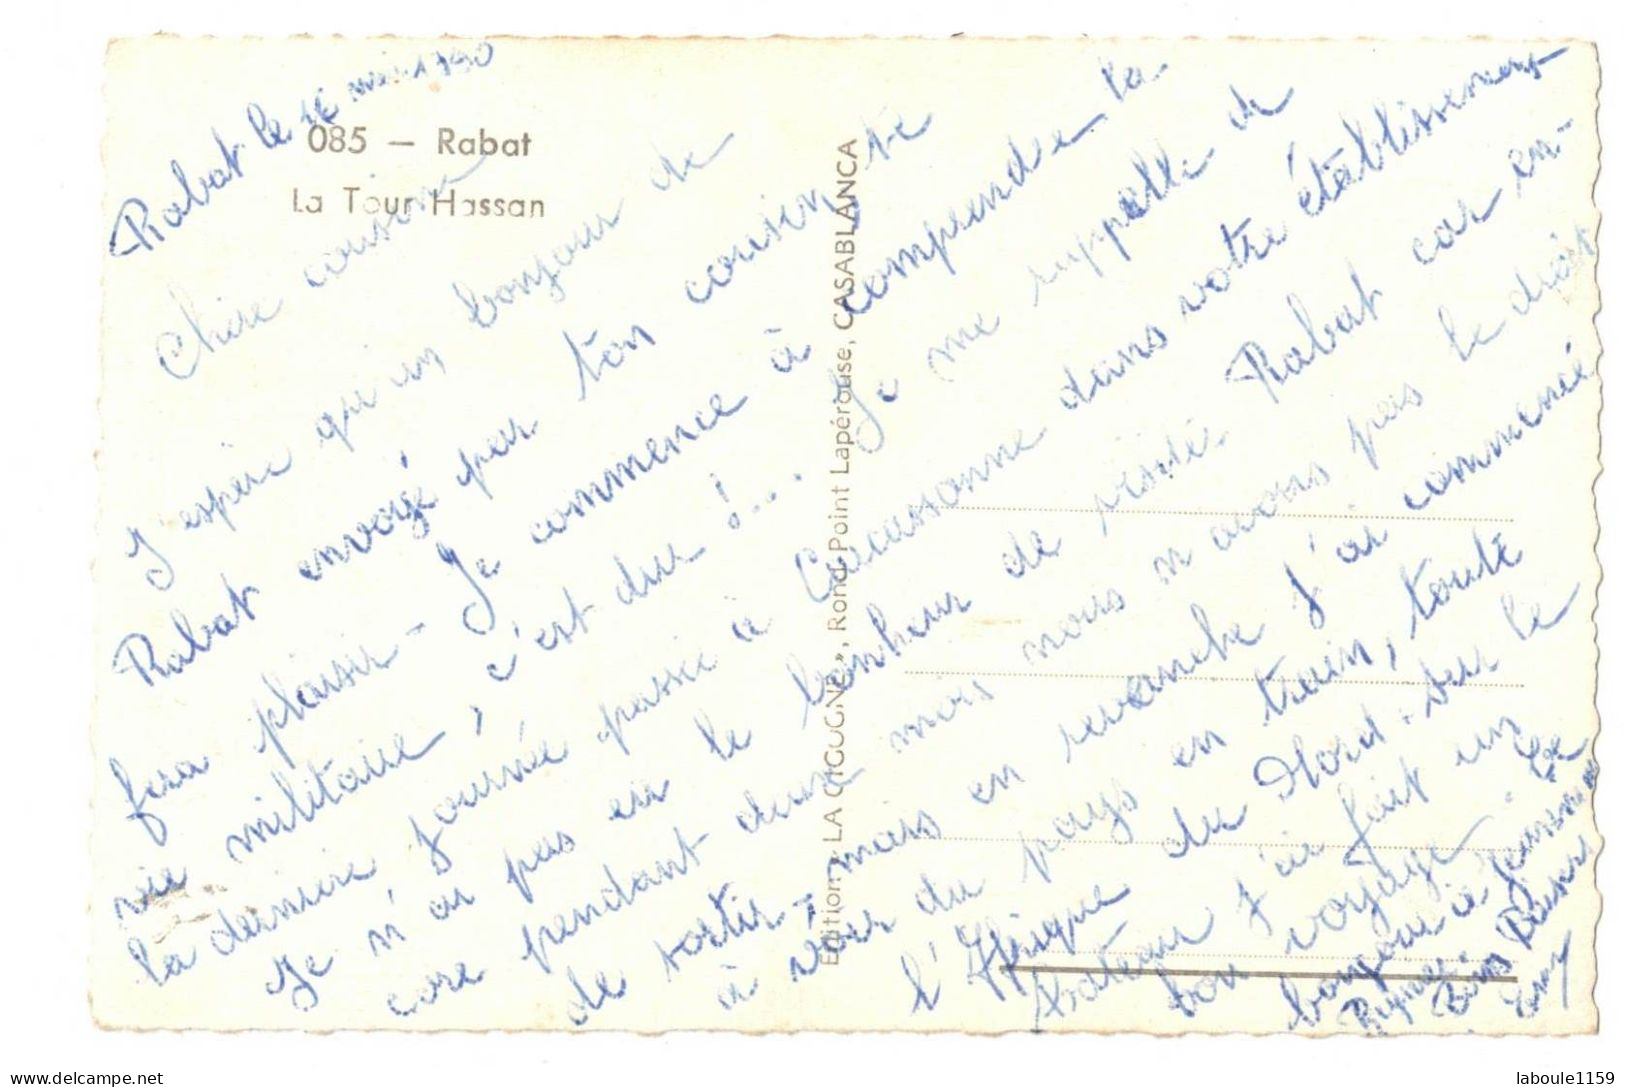 085 — Rabat
La Tour Hassan
Rabat le
Chère cousine
J'espère qu'un bonjour de
Rabat envoyé par ton cousin te
fera plaisir - Je commence à comprende la
vie militaire, c'est dur !... Je me rappelle de
la dernière journée passée à Carcassonne dans votre établissement
Je n'ai pas eu le bonheur de visité Rabat car en-
core pendant deux mois nous n'avons pas le droit
de sortir, mais en revanche j'ai commencé
à voir du pays en train, toute
l'Afrique du Nord. sur le
bateau j'ai fait un
bon voyage
bonjour à
Bons Baisers
Edition « LA CIGOGNE », Rond-Point Lapérouse, CASABLANCA
delcampe.net
laboule1159